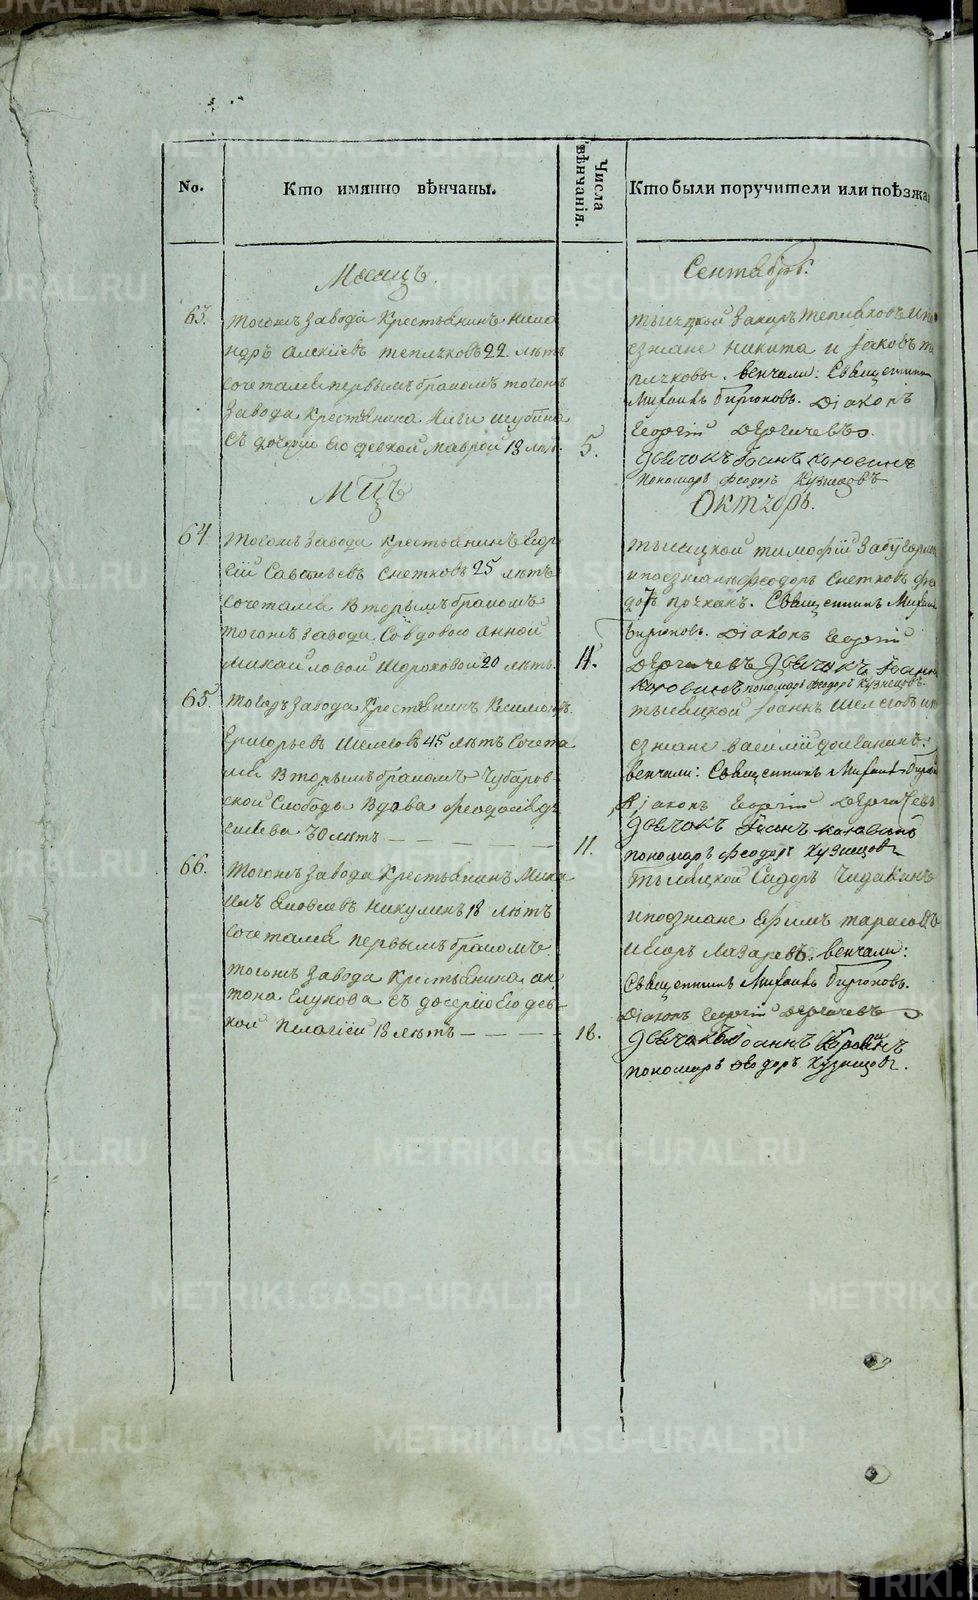 No.
Кто имянно вѣнчаны.
Числа вѣнчанія.
Кто были поручители или поѣзжа
Месяцъ.
Сентябрь.
63.
тогожъ завода крестьянинъ
ндръ Алекіевъ 22 лѣтъ
сочетался первымъ бракомъ тогожъ
завода крестьянина Шубина
съ дочерью его девкой Маврой 18 лѣт.
5.
тысяцкой Захаръ Тепляковъ и по
езжане Никита и Іаковъ Те
пляковы. венчали: Священникъ
Михаилъ Бирюковъ. Діаконъ
Георгій Дергачевъ.
дьячокъ Іоаннъ Коровинъ
пономаръ Феодоръ Кузнецовъ
Мцъ
Октябрь.
64.
тогожъ завода крестьянинъ Геор
гій Савельевъ Снетковъ 25 лѣтъ
сочетался вторымъ бракомъ
тогожъ завода со вдовою Анной
Михайловой Шороховой 20 лѣтъ.
4.
тысяцкой Тимофій
и поезжанѣ Феодоръ Снетковъ
Священникъ Михаилъ
Бирюковъ. Діаконъ Георгій
Дергачевъ дьячокъ Іоаннъ
Коровинъ пономаръ Феодоръ Кузнецовъ
65.
завода крестьянинъ
Григорьевъ Шелеговъ 45 лѣтъ сочета
лся вторымъ бракомъ Чубаров
ской слободы вдова Феодосія
30 лѣтъ
11.
тысяцкой Іоаннъ Шелеговъ и по
езжане Василій
венчали: Священникъ Михаилъ Бирюк
Діаконъ Георгій Дергачевъ
дьячокъ Іоаннъ Коровинъ
пономаръ Феодоръ Кузнецовъ
66.
тогожъ завода крестьянинъ Миха
илъ Яковлевъ Никулинъ 18 лѣтъ
сочетался первымъ бракомъ
тогожъ завода крестьянина Ан
тона Елукова съ дочерью его дев
кой Пелагіей 18 лѣтъ
18.
тысяцкой Сидоръ Чидакинъ
и поезжане Ефимъ Тарасовъ
и Егоръ Лазаревъ. венчали:
Священникъ Михаилъ Бирюковъ.
Діаконъ Георгій Дергачевъ
дьячокъ Іоаннъ Коровинъ
пономаръ Феодоръ Кузнецовъ.
METRIKI.GASO-URAL.RU